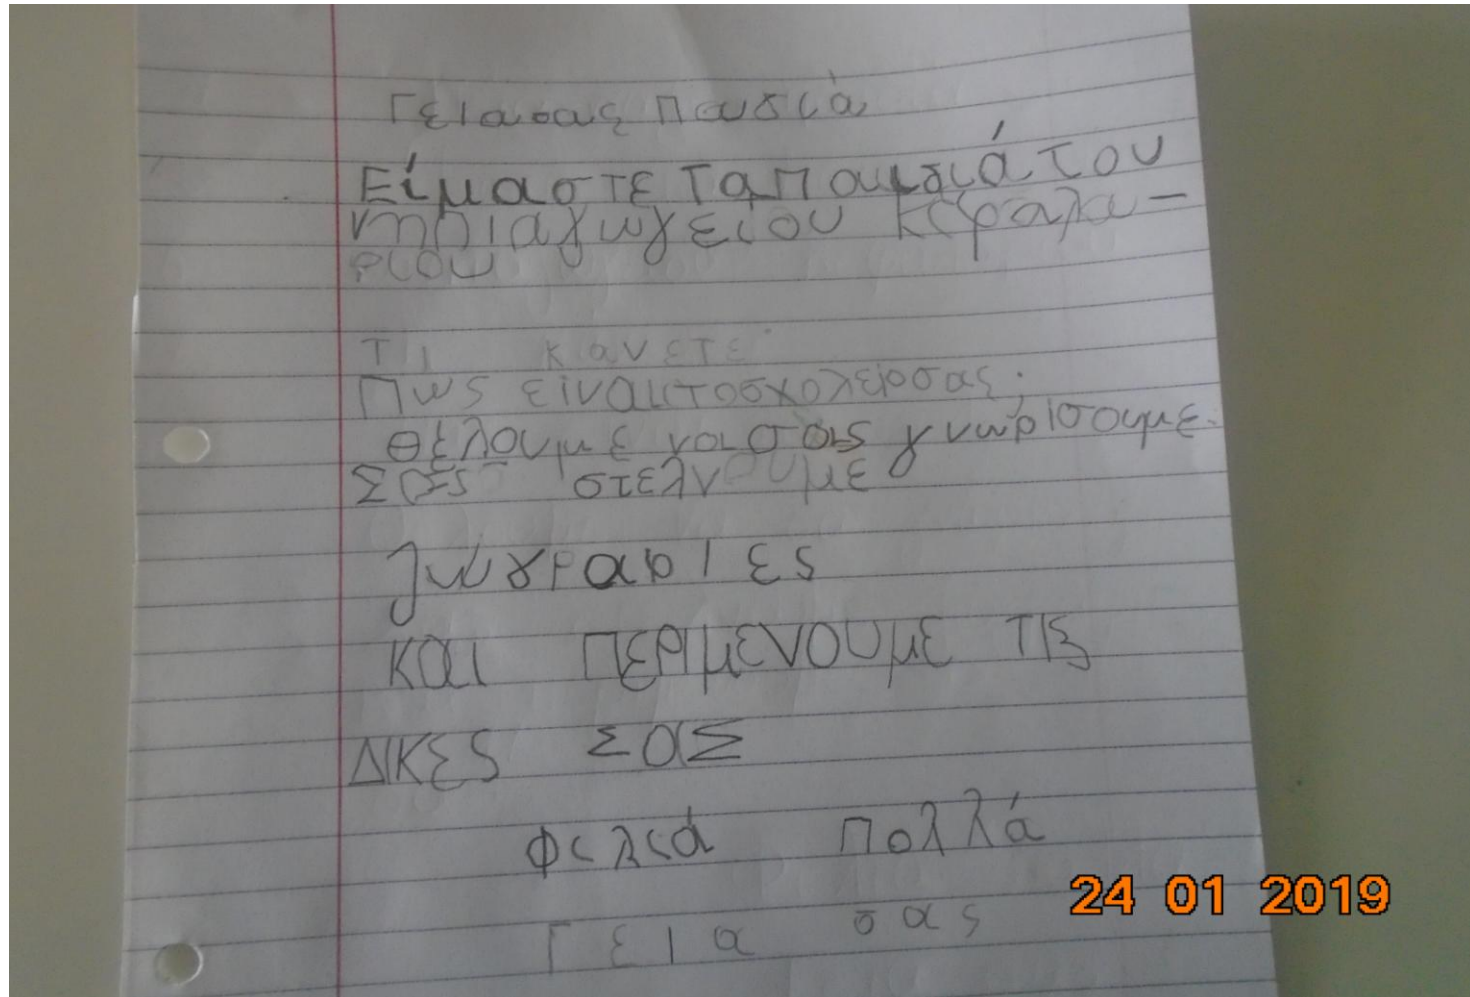 Γειασας Παιδιά
Είμαστε Ταπαιδιά του
νηπιαγωγείου Κεφαλα-
ρίου
Τι κανετε
Πως ειναιτοσχολειοσας;
θέλουμε να σας γνωρίσουμε.
Σας στελνουμε
ζωγραφιες
και ΠΕΡΙμΕΝΟυμΕ ΤΙΣ
ΔΙΚΕς ΣαΣ
Φιλιά Πολλά
Γεια σας
24 01 2019